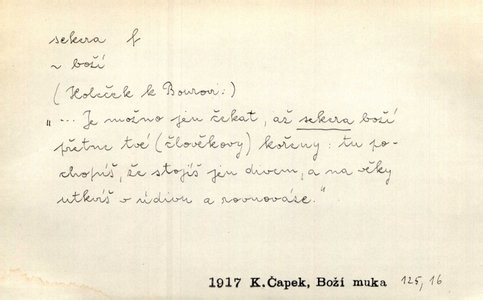 sekera f
~ boží
(Holeček k Bourovi:)
"... Je možno jen čekat, až sekera boží
přetne tvé (člověkovy) kořeny: tu po-
chopíš, že stojíš jen divem, a na věky
utkvíš v údivu a rovnováze."
1917 K.Čapek, Boží muka 125, 16